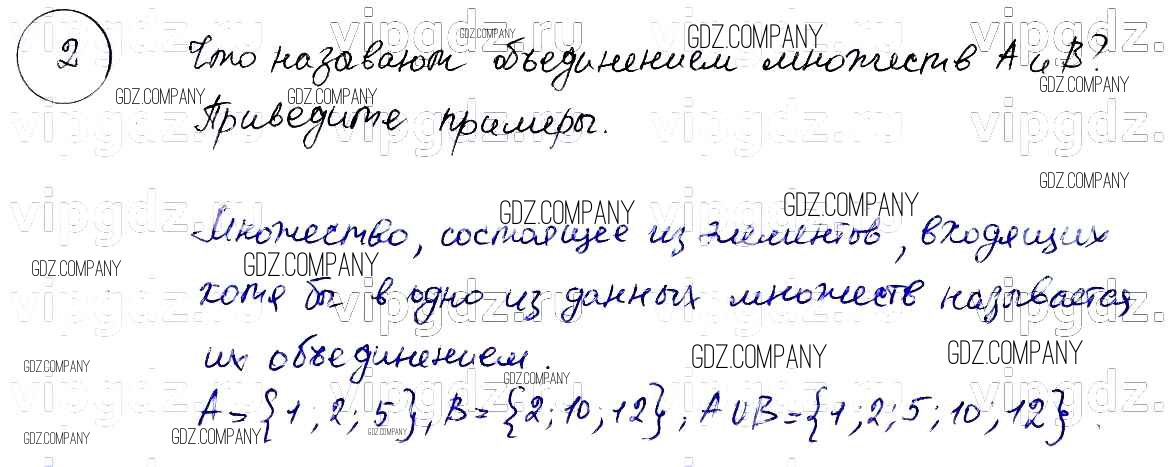 2 Что называют объединением множеств A и B?
Приведите примеры.
Множество, состоящее из элементов, входящих
хотя бы в одно из данных множеств называется
их объединением.
A = {1; 2; 5}, B = {2; 10; 12}; A ∪ B = {1; 2; 5; 10; 12}.
vipgdz.ru
GDZ.COMPANY